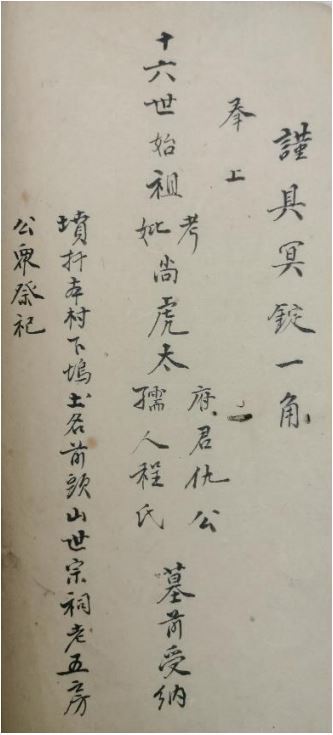 謹具冥錠一角
奉上
十六世始祖考妣尚虎太府君仇公孺人程氏墓前受納
墳扦本村下塢土名前頭山世宗祠老五房
公眾祭祀